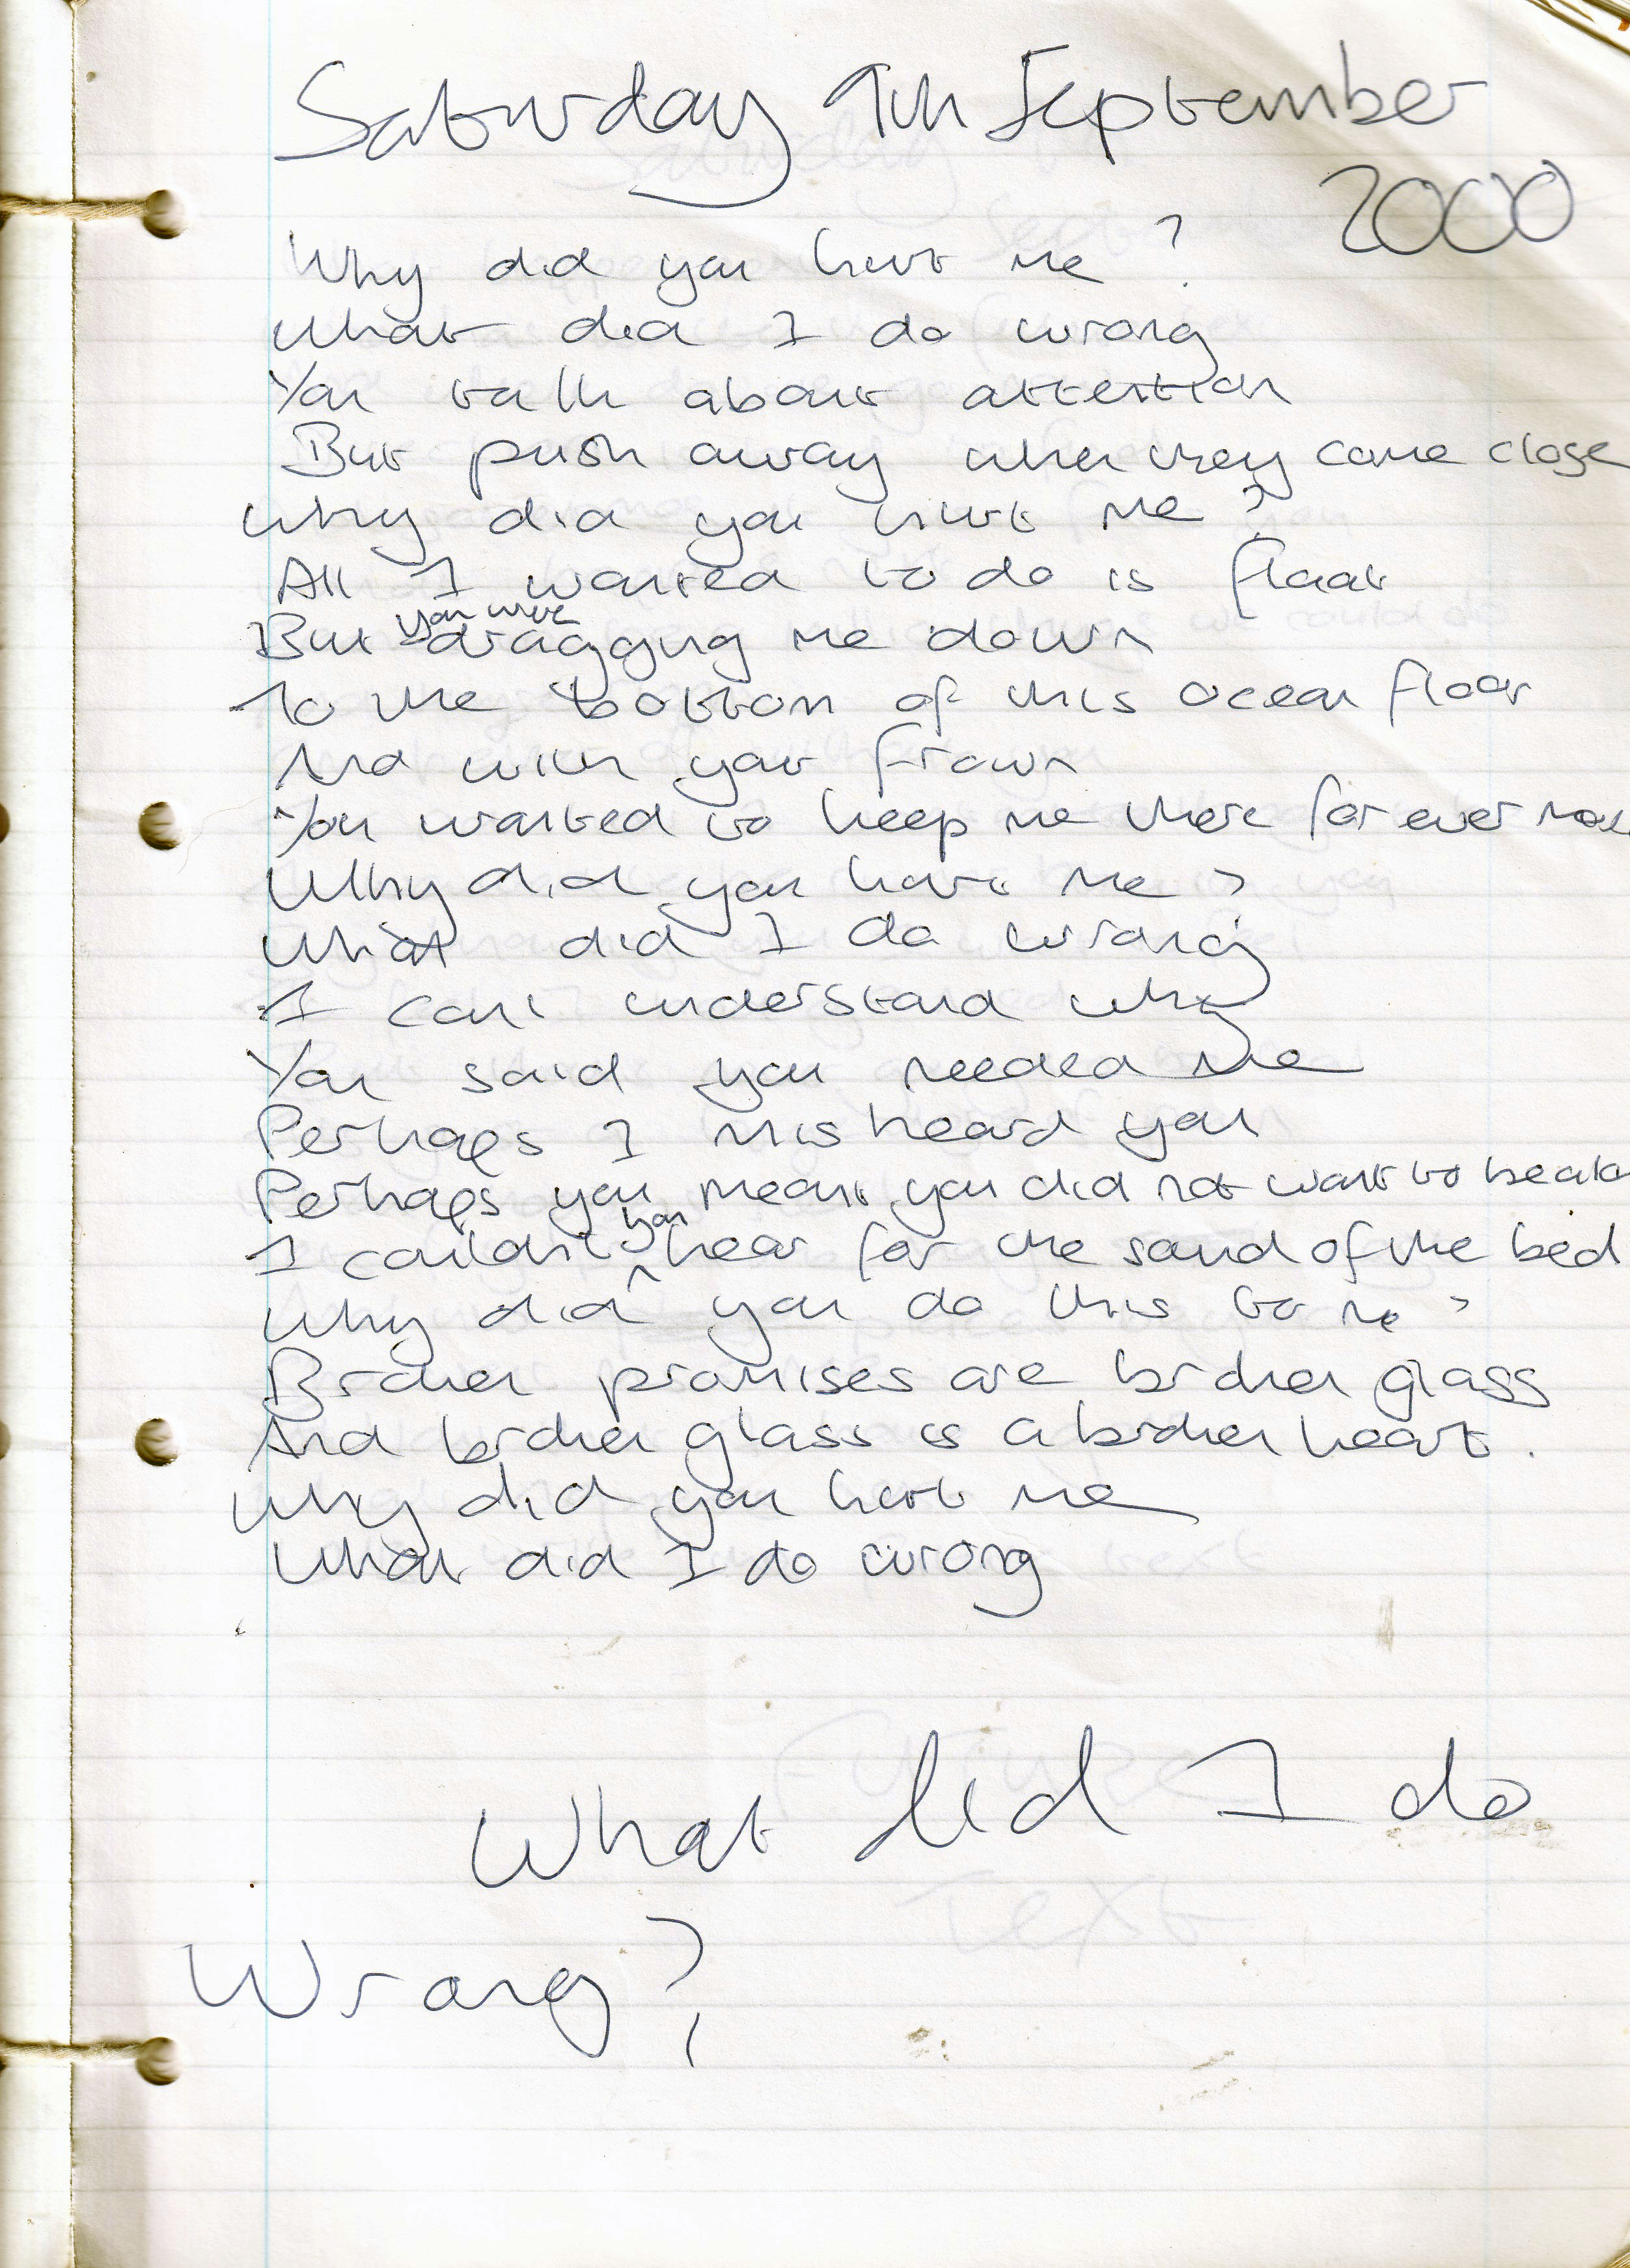 Saturday 9th September
2000
Why did you hurt me?
What did I do wrong
You talk about attention
But push away when they come close
Why did you hurt me?
All I wanted to do is float
But you were dragging me down
To the bottom of this ocean floor
And with your frown
You wanted to keep me there for ever more
Why did you hurt me?
What did I do wrong
I can't understand why
You said you needed me
Perhaps I misheard you
Perhaps you meant you did not want to be
I couldn't hear you for the sand of the bed
Why did you do this to me?
Broken promises are broken glass
And broken glass is a broken heart.
Why did you hurt me
What did I do wrong
What did I do
Wrong?